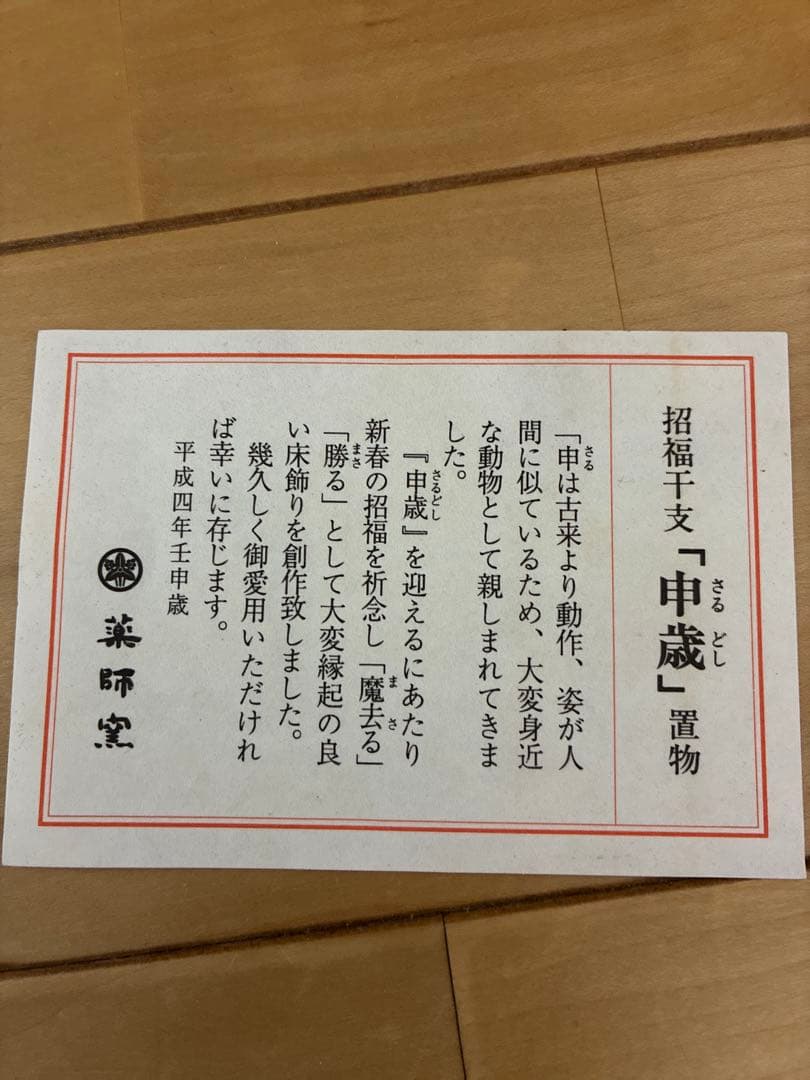 招福干支「申歳」置物
さる どし
「申は古来より動作、姿が人
さる
間に似ているため、大変身近
な動物として親しまれてきま
した。
『申歳』を迎えるにあたり
さるどし
新春の招福を祈念し「魔去る」
ま さ
「勝る」として大変縁起の良
まさ
い床飾りを創作致しました。
幾久しく御愛用いただけれ
ば幸いに存じます。
平成四年壬申歳
薬師窯